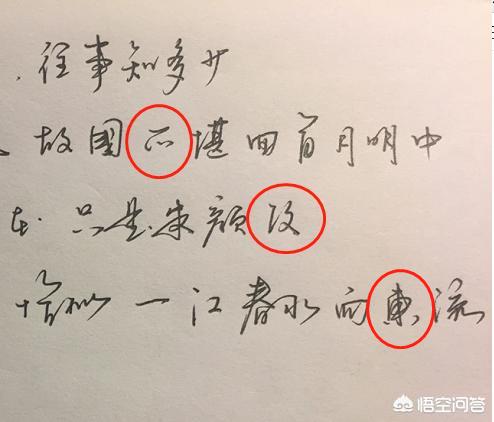 往事知多少
故國不堪回首月明中
在 只是朱颜改
恰似一江春水向東流
悟空问答